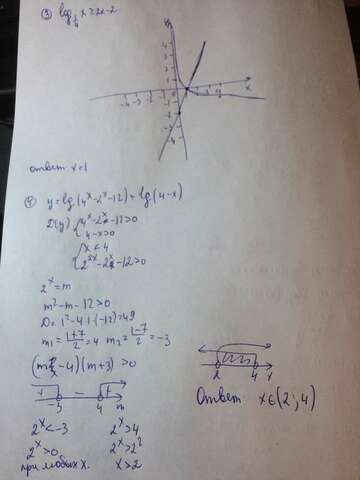 ③ log_{1/4} x = 2x-2
y
4
3
2
1
-4 -3 -2 -1
1 2 3 4
x
-1
-2
-3
-4
ответ x=1
④ y = lg(4^x-2^x-12)+lg(4-x)
D(y) { 4^x-2^x-12>0
4-x>0
{ x<4
2^{2x}-2^x-12>0
2^x=m
m²-m-12>0
D=1²-4·1·(-12)=49
m₁=(1+7)/2=4 m₂=(1-7)/2=-3
(m-4)(m+3)>0
+ - +
-3 4 m
2^x<-3 2^x>4
2^x>0 2^x>2²
при любых x. x>2
2 4 x
Ответ x∈(2;4)